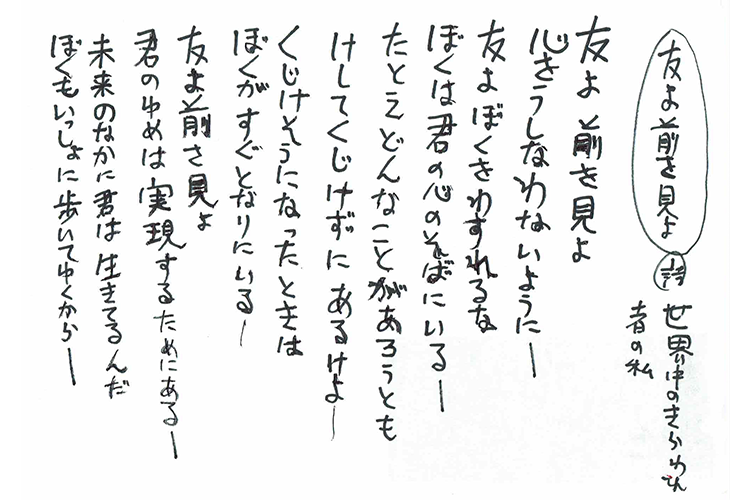 友よ前を見よ
詩
世界中のきらわれ
者の私
友よ前を見よ
心をうしなわないようにー
友よぼくをわすれるな
ぼくは君の心のそばにいるー
たとえどんなことがあろうとも
けしてくじけずにあるけよー
くじけそうになったときは
ぼくがすぐとなりにいるー
友よ前を見よ
君のゆめは実現するためにあるー
未来のなかに君は生きてるんだ
ぼくもいっしょに歩いてゆくからー